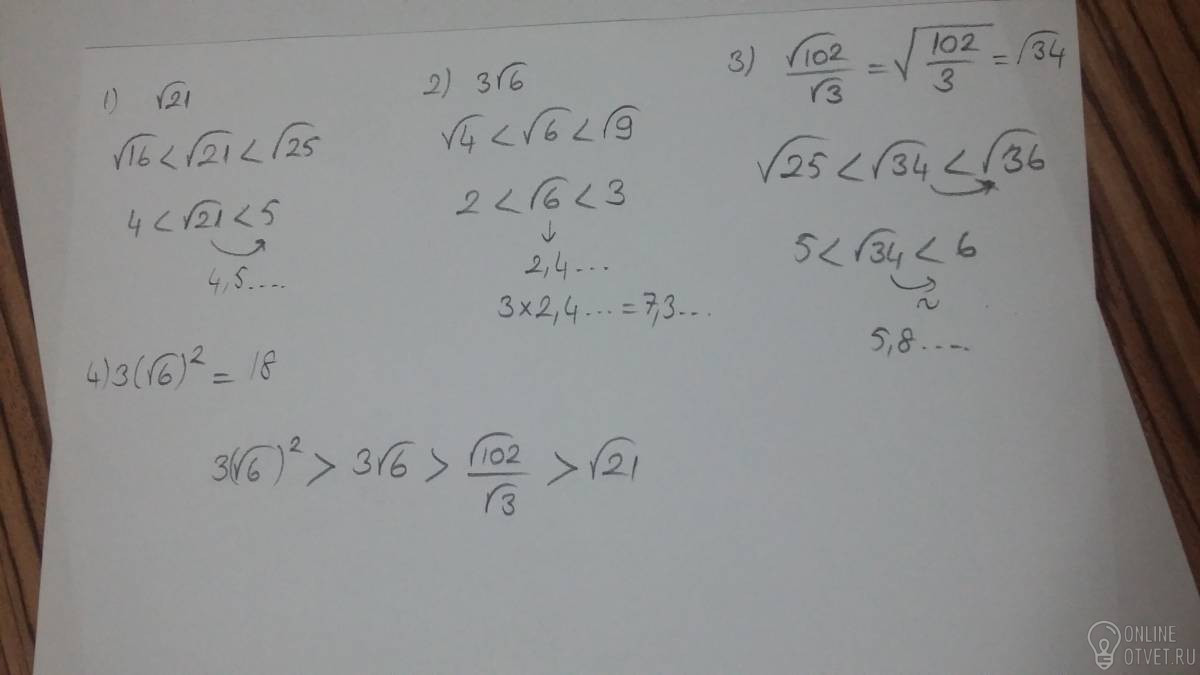 1) √21
√16 < √21 < √25
4 < √21 < 5
4,5....
2) 3√6
√4 < √6 < √9
2 < √6 < 3
↓
2,4...
3×2,4... = 7,3...
3) √102/√3 = √(102/3) = √34
√25 < √34 < √36
5 < √34 < 6
~
5,8.....
4) 3(√6)² = 18
3(√6)² > 3√6 > √102/√3 > √21
ONLINE
OTVET.RU